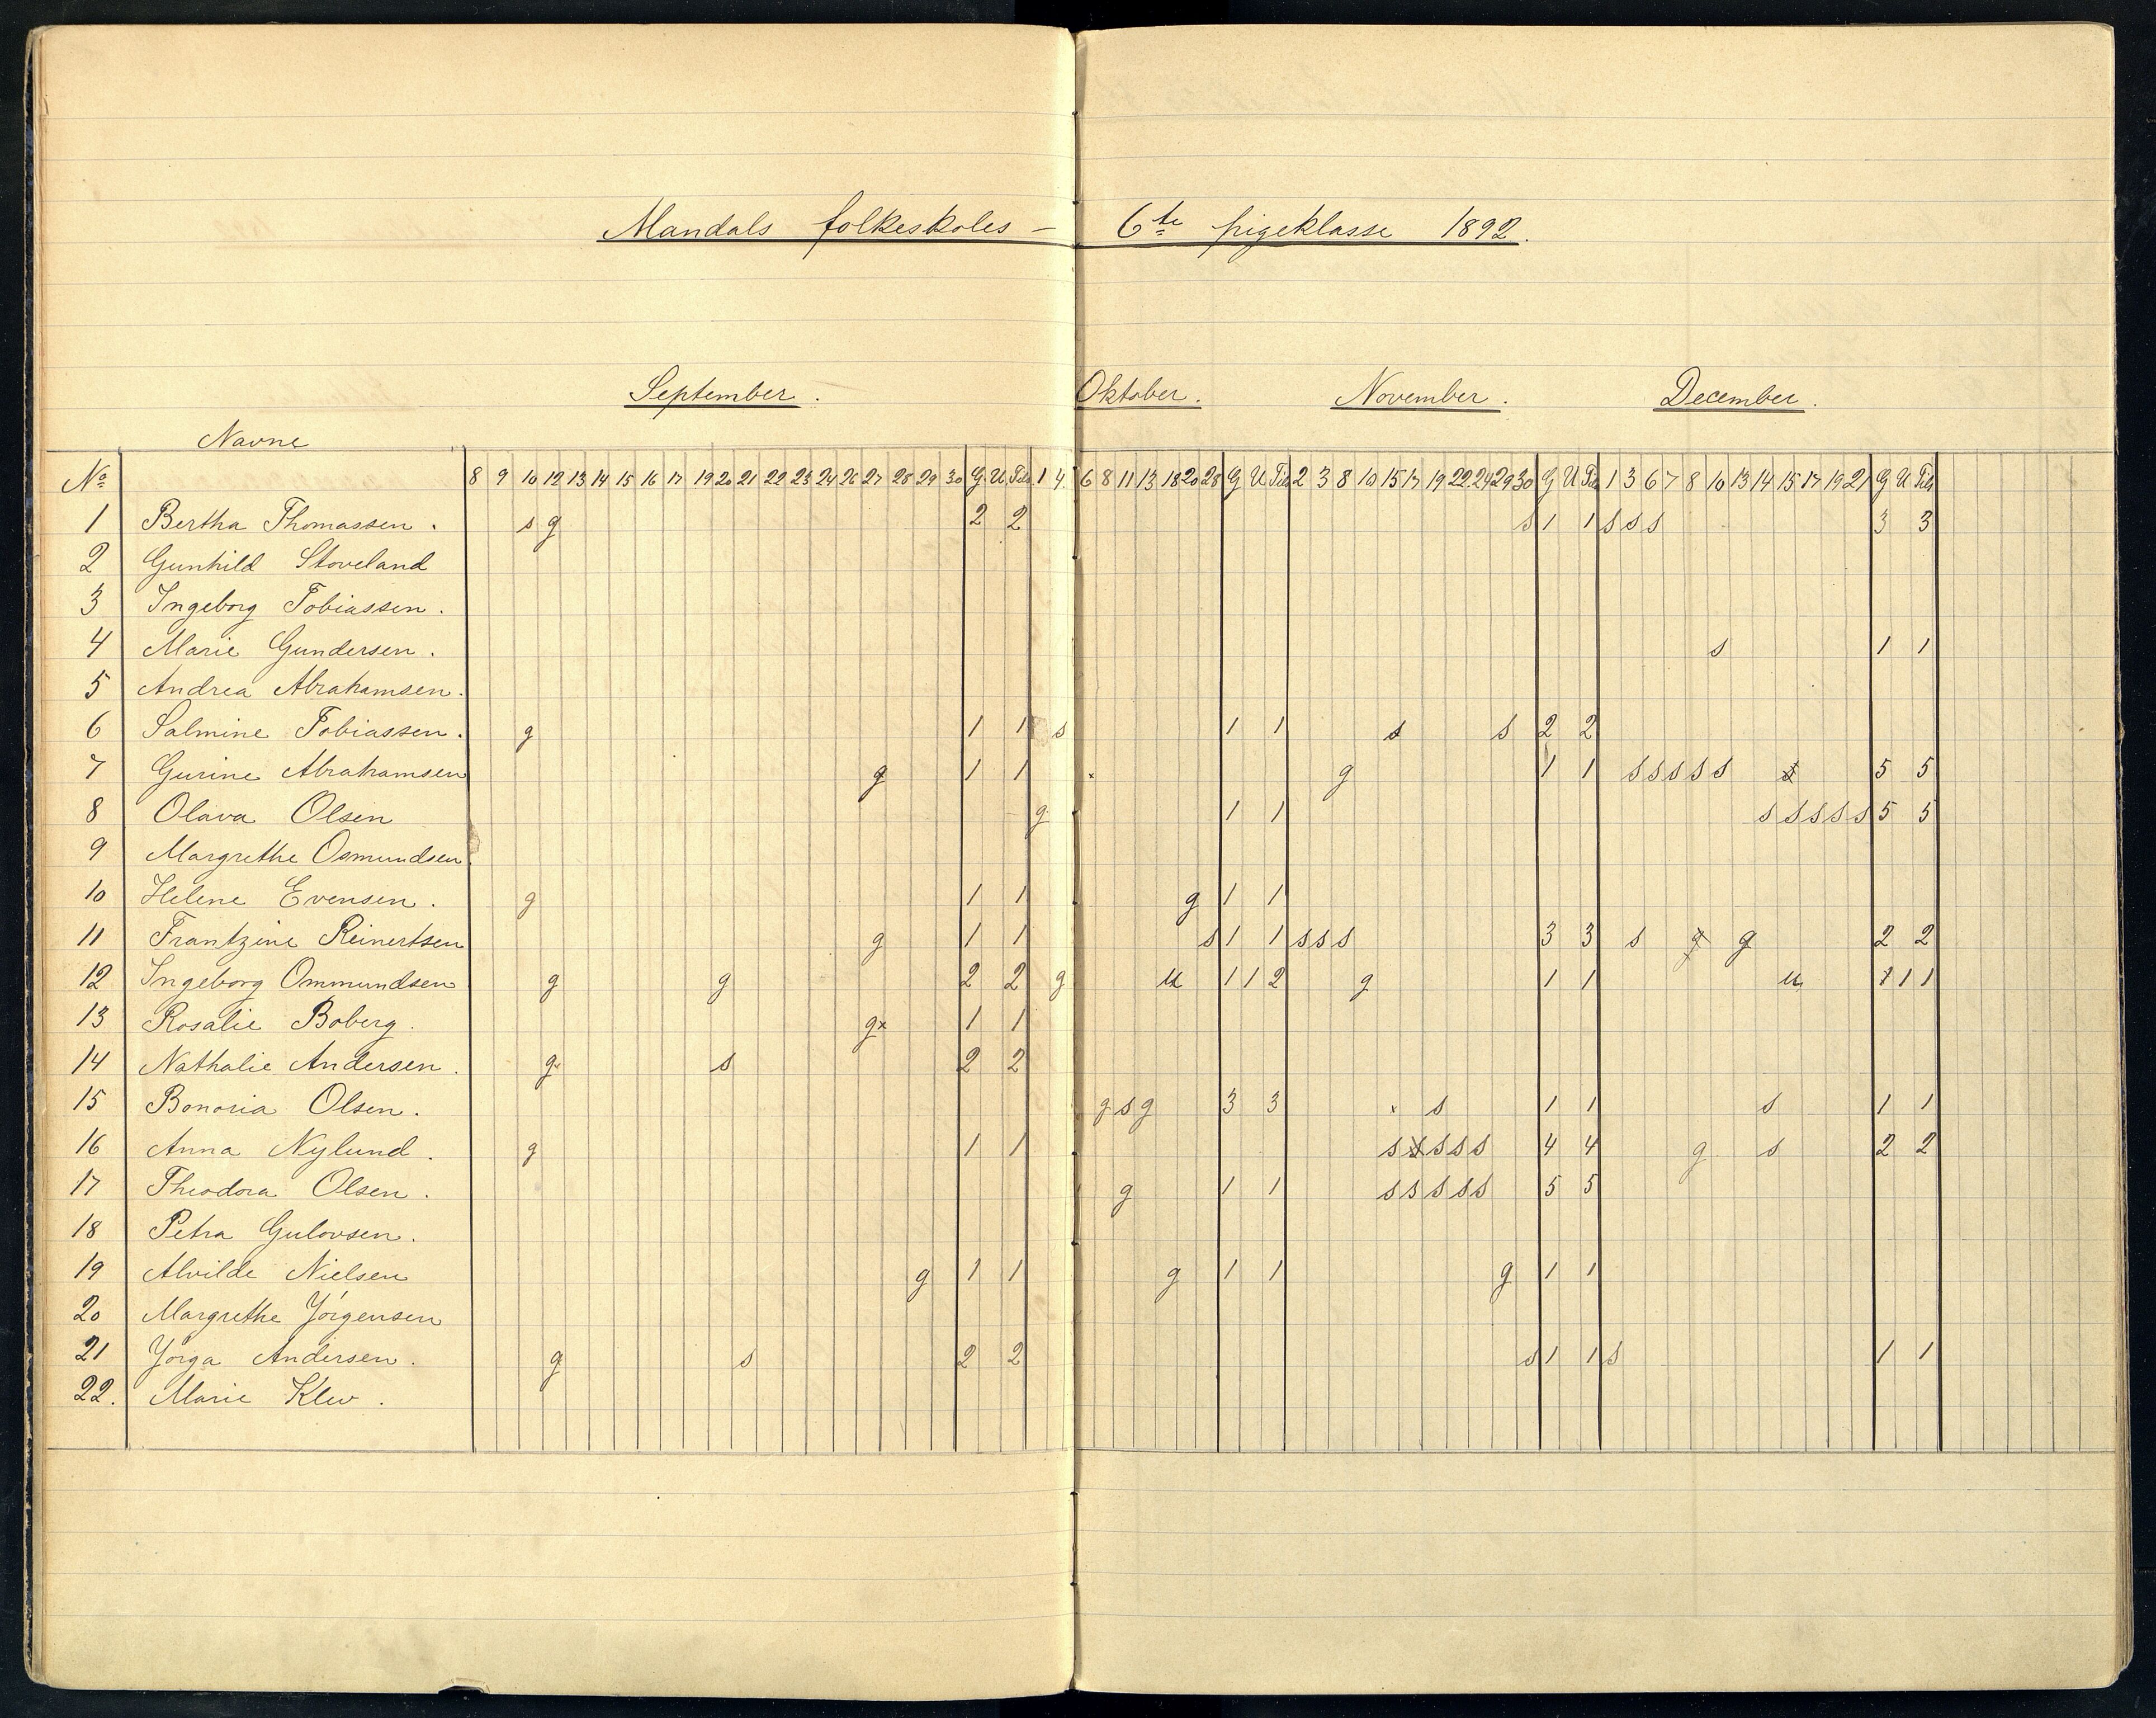 Mandals folkeskoles – 6te pigeklasse 1892.
September. Oktober. November. December.
Navne
No 8 9 10 12 13 14 15 16 17 19 20 21 22 23 24 26 27 28 29 30 G U Tils 1 4 6 8 11 13 18 20 28 G U Tils 2 3 8 10 15 17 19 22 24 29 30 G U Tils 1 3 6 7 8 10 13 14 15 17 19 21 G U Tils
1 Bertha Thomassen. s g 2 2 s 1 1 s s s 3 3
2 Gunhild Stoveland
3 Ingeborg Tobiassen.
4 Marie Gundersen. s 1 1
5 Andrea Abrahamsen.
6 Salmine Tobiassen. g 1 1 s 1 1 s s 2 2
7 Gurine Abrahamsen g 1 1 g 1 1 s s s s s s 5 5
8 Olava Olsen g 1 1 s s s s s 5 5
9 Margrethe Osmundsen
10 Helene Evensen. g 1 1 g 1 1
11 Frantzine Reinertsen g 1 1 s 1 1 s s s 3 3 s g g 2 2
12 Ingeborg Ommundsen g g 2 2 g u 1 1 2 g 1 1 u 1 1 1
13 Rosalie Boberg. gx 1 1
14 Nathalie Andersen. g s 2 2
15 Bonoria Olsen. g s g 3 3 s 1 1 s 1 1
16 Anna Nylund. g 1 1 s s s s s 4 4 g s 2 2
17 Theodora Olsen. g 1 1 s s s s s 5 5
18 Petra Gulovsen.
19 Alvilde Nielsen g 1 1 g 1 1 g 1 1
20 Margrethe Jörgensen
21 Jörga Andersen. g s 2 2 s 1 1 s 1 1
22. Marie Klev.